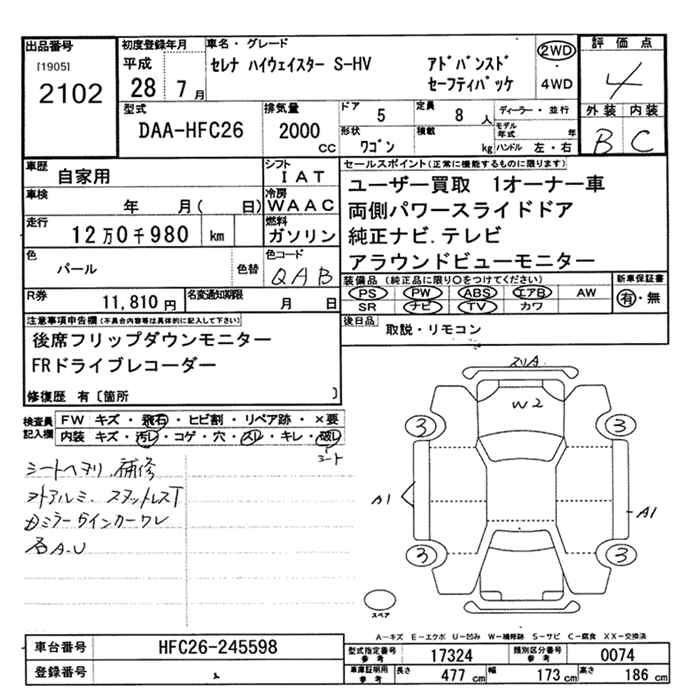 出品番号
[1905]
2102
初度登録年月
平成
28 7月
車名・グレード
セレナ ハイウェイスター S-HV アドバンスド
セーフティパッケ
2WD
4WD
評価点
4
外装 内装
B C
型式
DAA-HFC26
排気量
2000
CC
ドア
5
定員
8人
形状
ワゴン
積載
kg
ディーラー・並行
モデル年式 年
ハンドル 左・右
車歴
自家用
シフト
IAT
車検
年 月( 日)
冷房
WAAC
走行
12万0千980 km
燃料
ガソリン
色
パール
色替
色コード
QAB
R券
11,810円
名変通知期限
月 日
セールスポイント(正常に機能するものに限ります)
ユーザー買取 1オーナー車
両側パワースライドドア
純正ナビ.テレビ
アラウンドビューモニター
装備品(純正品に限り○をつけてください)
PS PW ABS エアB AW
SR ナビ TV カワ
新車保証書
有・無
後日品
取説・リモコン
注意事項申告欄(不具合内容等は具体的に記入して下さい)
後席フリップダウンモニター
FRドライブレコーダー
修復歴 有〔箇所 〕
検査員
記入欄
FW キズ・飛石・ヒビ割・リペア跡・×要
内装 キズ・汚レ・コゲ・穴・スレ・キレ・破レ
シート
シートヘタリ.補修
外アルミ.スタットレスT
ミラーウインカーワレ
各A.U
スリA
W2
3
3
A1
A1
3
3
スペア
A－キズ E－エクボ U－凹み W－補修跡 S－サビ C－腐食 XX－交換済
車台番号
HFC26-245598
登録番号
型式指定番号
参考
17324
類別区分番号
参考
0074
車庫証明用
参考
長さ
477 cm
幅
173 cm
高さ
186 cm